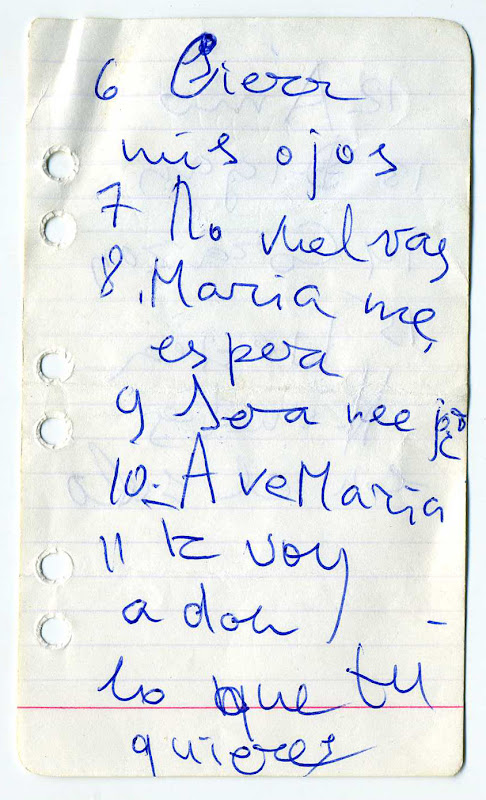 6 Cierro
mis ojos
7 No vuelvas
8. Maria me
espera
9 Sera mejor
10.- AveMaria
11 te voy
a dar
lo que tu
quieres